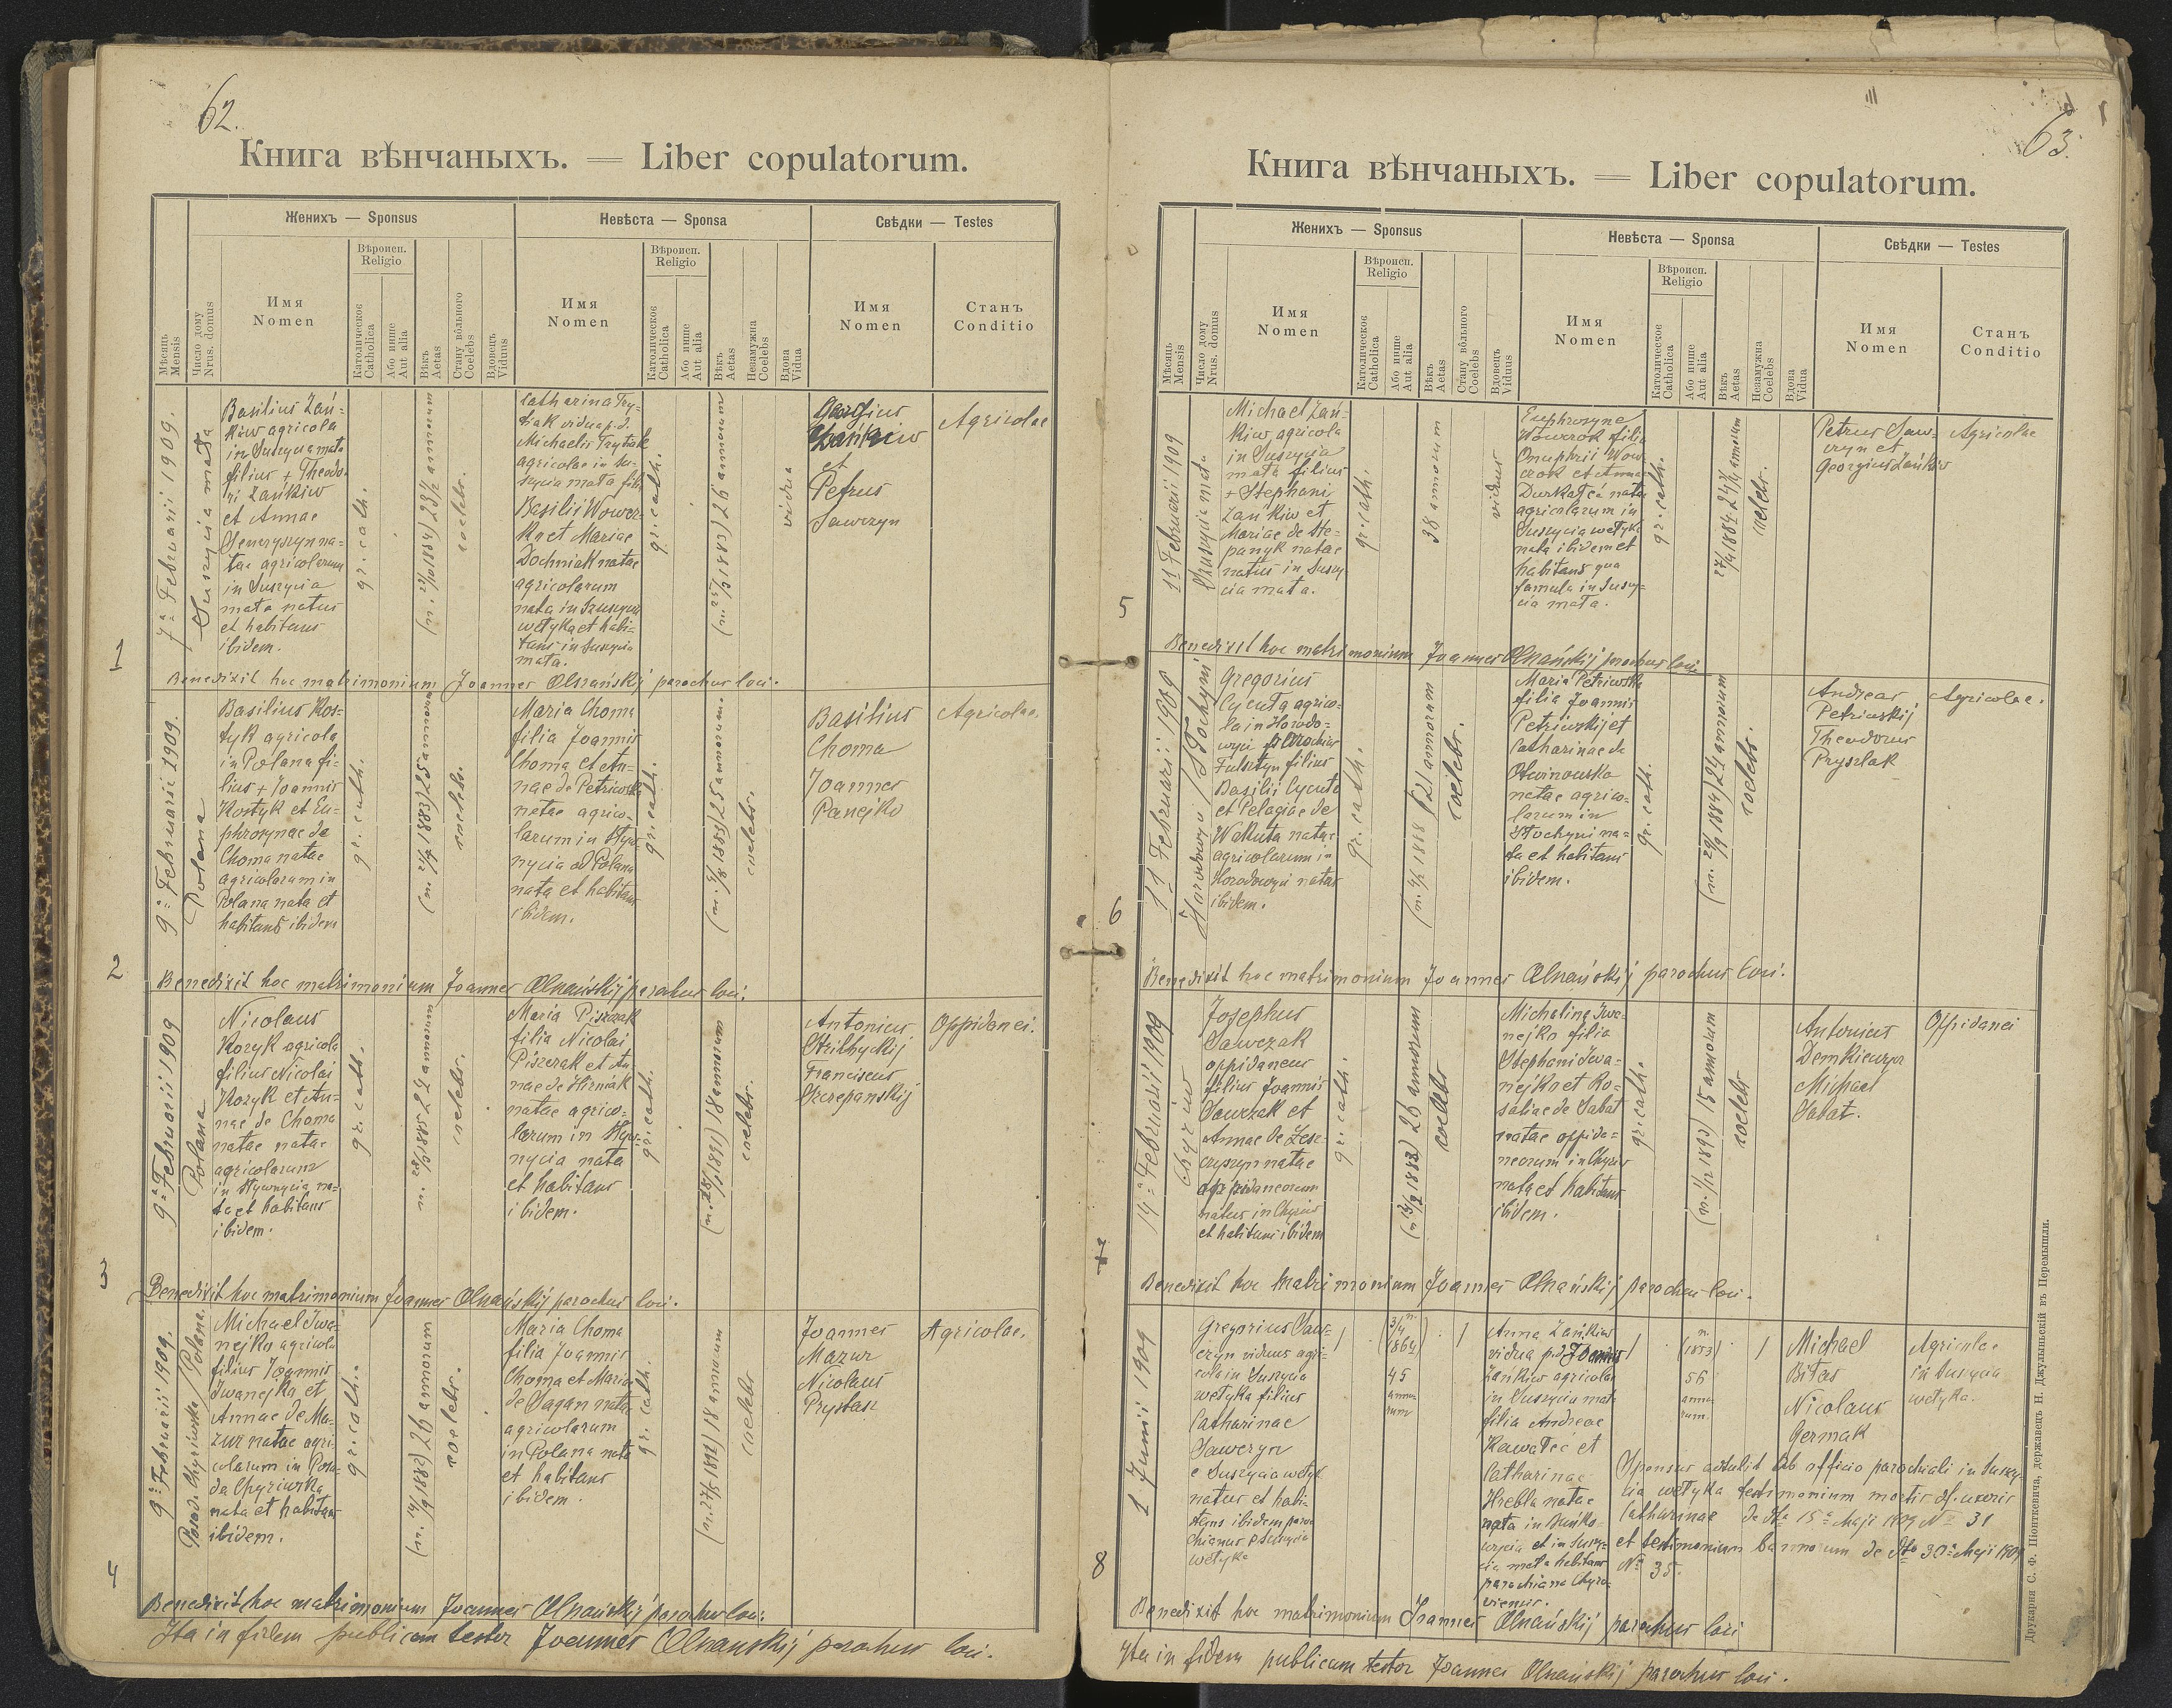 62.
Книга вѣнчаныхъ. — Liber copulatorum.
Женихъ — Sponsus
Невѣста — Sponsa
Свѣдки — Testes
Мѣсяць
Mensis
Число дому
Nrus. domus
Имя
Nomen
Вѣроисп.
Religio
Католическое
Catholica
Або инше
Aut alia
Вѣкъ
Aetas
Стану вôльного
Coelebs
Вдовець
Viduus
Имя
Nomen
Вѣроисп.
Religio
Католическое
Catholica
Або инше
Aut alia
Вѣкъ
Aetas
Незамужна
Coelebs
Вдова
Vidua
Имя
Nomen
Станъ
Conditio
1
7a Februarii 1909.
Suszycia mała
Basilius Zań=
kiw agricola
in Suszycia mała
filius + Theodo-
ri Zańkiw
et Annae
na=
tae agricolarum
in Suszycia
mała natus
et habitans
ibidem.
gr. cath.
coelebs.
Catharina Try-
tiak vidua p. d.
Michaelis Trytiak
agricolae in Su-
szycia mała filia
Basilii Wower-
k et Mariae
Dochniak natae
agricolarum
nata in Szuszycia
wełyka et habi=
tans in Suszycia
mała.
gr. cath.
29 annorum
vidua
Georgius
Zańkiw
et
Petrus
Sawczyn
Agricolae
Benedixit hoc matrimonium Joannes Olszańskij parochus loci.
2
9a Februarii 1909.
Polana
Basilius Kos=
tyk agricola
in Polana fi-
lius + Joannis
Kostyk et Eu-
phrosynae de
Choma natae
agricolarum in
Polana nata et
habitans ibidem
gr. cath.
25 annorum
coelebs.
Maria Choma
filia Joannis
Choma et An-
nae de Petriwska
natae agrico-
larum in Styw-
nycia ad Polana
nata et habitans
ibidem.
gr. cath.
25 annorum.
coelebs.
Basilius
Choma
Joannes
Panejko
Agricolae.
Benedixit hoc matrimonium Joannes Olszańskij parochus loci.
3
9a Februarii 1909
Polana
Nicolaus
Kozyk agricola
filius Nicolai
Kozyk et An-
nae de Choma
natae natae
agricolarum
in Stywnycia na-
ta et habitans
ibidem.
gr. cath.
coelebs.
Maria Piszczak
filia Nicolai
Piszczak et An-
nae de Hirniak
natae agrico=
larum in Styw-
nycia nata
et habitans
ibidem.
gr. cath.
18 annorum
coelebs.
Antonius
Strilbyckij
Franciscus
Szczepanskij
Oppidanei.
Benedixit hoc matrimonium Joannes Olszańskij parochus loci.
4
9a Februarii 1909.
Posada Chyriwska / Polana.
Michael Iwa-
nejko agricola
filius Joannis
Iwanejko et
Annae de Ma-
zur natae agri-
colarum in Posa-
da Chyriwska
nata et habitans
ibidem.
gr. cath.
26 annorum
coelebs.
Maria Choma
filia Joannis
Choma et Maria
de Sagan natae
agricolarum
in Polana nata
et habitans
ibidem.
gr. cath.
18 annorum
coelebs
Joannes
Mazur
Nicolaus
Prystasz
Agricolae.
Benedixit hoc matrimonium Joannes Olszańskij parochus loci.
Ita in fidem publicam testor Joannes Olszanskij parochus loci.
63.
Книга вѣнчаныхъ. — Liber copulatorum.
Женихъ — Sponsus
Невѣста — Sponsa
Свѣдки — Testes
Мѣсяць
Mensis
Число дому
Nrus. domus
Имя
Nomen
Вѣроисп.
Religio
Католическое
Catholica
Або инше
Aut alia
Вѣкъ
Aetas
Стану вôльного
Coelebs
Вдовець
Viduus
Имя
Nomen
Вѣроисп.
Religio
Католическое
Catholica
Або инше
Aut alia
Вѣкъ
Aetas
Незамужна
Coelebs
Вдова
Vidua
Имя
Nomen
Станъ
Conditio
5
11 Februarii 1909
Szuszycia mała
Michael Zań-
kiw, agricola
in Suszycia
mała filius
+ Stephani
Zańkiw et
Mariae de Ste-
panyk natae
natus in Suszy
cia mała.
gr. cath.
38 annorum
viduus
Euphrosyne
Wowczok filia
Onuphrii Wow
czok et Annae
Durkałeć natae
agricolarum in
Suszycia wełyka
nata ibidem et
habitans qua
famula in Suszy-
cia mała.
gr. cath.
coelebs.
Petrus Saw-
czyn et
Georgius Zańkiw
Agricolae
Benedixit hoc matrimonium Joannes Olszańskij parochus loci.
6
11 Februarii 1909
Horodowyci / Słochyni
Gregorius
Cycuła agrico-
la in Horodo-
wyci parochiae
Fulsztyn filius
Basilii Cycuła
et Pelagiae de
Wakuta natae
agricolarum in
Horodowyci natus
ibidem.
gr. cath.
21 annorum
coelebs.
Maria Petriwska
filia Joannis
Petriwskij et
Catharinae de
Otwinowska
natae agrico-
larum in
Słochyni na=
ta et habitans
ibidem.
gr. cath.
24 annorum
coelebs.
Andreas
Petriwskij
Theodorus
Pryszlak
Agricolae.
Benedixit hoc matrimonium Joannes Olszańskij parochus loci.
7
14a Februarii 1909
Chyriw
Josephus
Sawczak
oppidaneus
filius Joannis
Sawczak et
Annae de Lesz-
czyszyn natae
oppidaneorum
natus in Chyriw
et habitans ibidem
gr. cath.
26 annorum
coelebs
Michalina Iwa-
nejko filia
Stephani Iwa-
nejko et Ro-
saliae de Sabat
natae oppida=
neorum in Chyriw
nata et habitans
ibidem.
gr. cath.
15 annorum
coelebs
Antonius
Demkiewycz
Michael
Sabat.
Oppidanei
Benedixit hoc matrimonium Joannes Olszańskij parochus loci.
8
1 Junii 1909
Gregorius Saw-
czyn viduus agri-
cola in Suszycia
wełyka filius
Catharinae
Sawczyn
e Suszycia wełyk
natus et habi-
tans ibidem paro
chianus Suszycia
wełyka
1
1864
45
anno-
rum
1
Anna Zańkiw
vidua p. d. Joannis
Zańkiw agricolae
in Suszycia mała
filia Andreae
Kawałeć et
Catharinae
Hrebla natae
nata in Suńko-
wycia et in Suszy-
cia mała habitans
parochiana Chyro-
viensis.
1
n.
(1853)
56
anno-
rum.
1
Michael
Bitas
Nicolaus
Germak
Agricolae
in Suszycia
wełyka.
Sponsus attulit ab officio parochiali in Suszy-
cia wełyka testimonium mortis def. uxoris
Catharinae de dto 15a Maji 1909 No 31
et testimonium bannorum de dto 30a Maji 1909
No 35.
Benedixit hoc matrimonium Joannes Olszańskij parochus loci
Ita in fidem publicam testor Joannes Olszańskij parochus loci.
Друкарня С. Ф. Піонткевича, державець Н. Джулыньскій въ Перемышли.